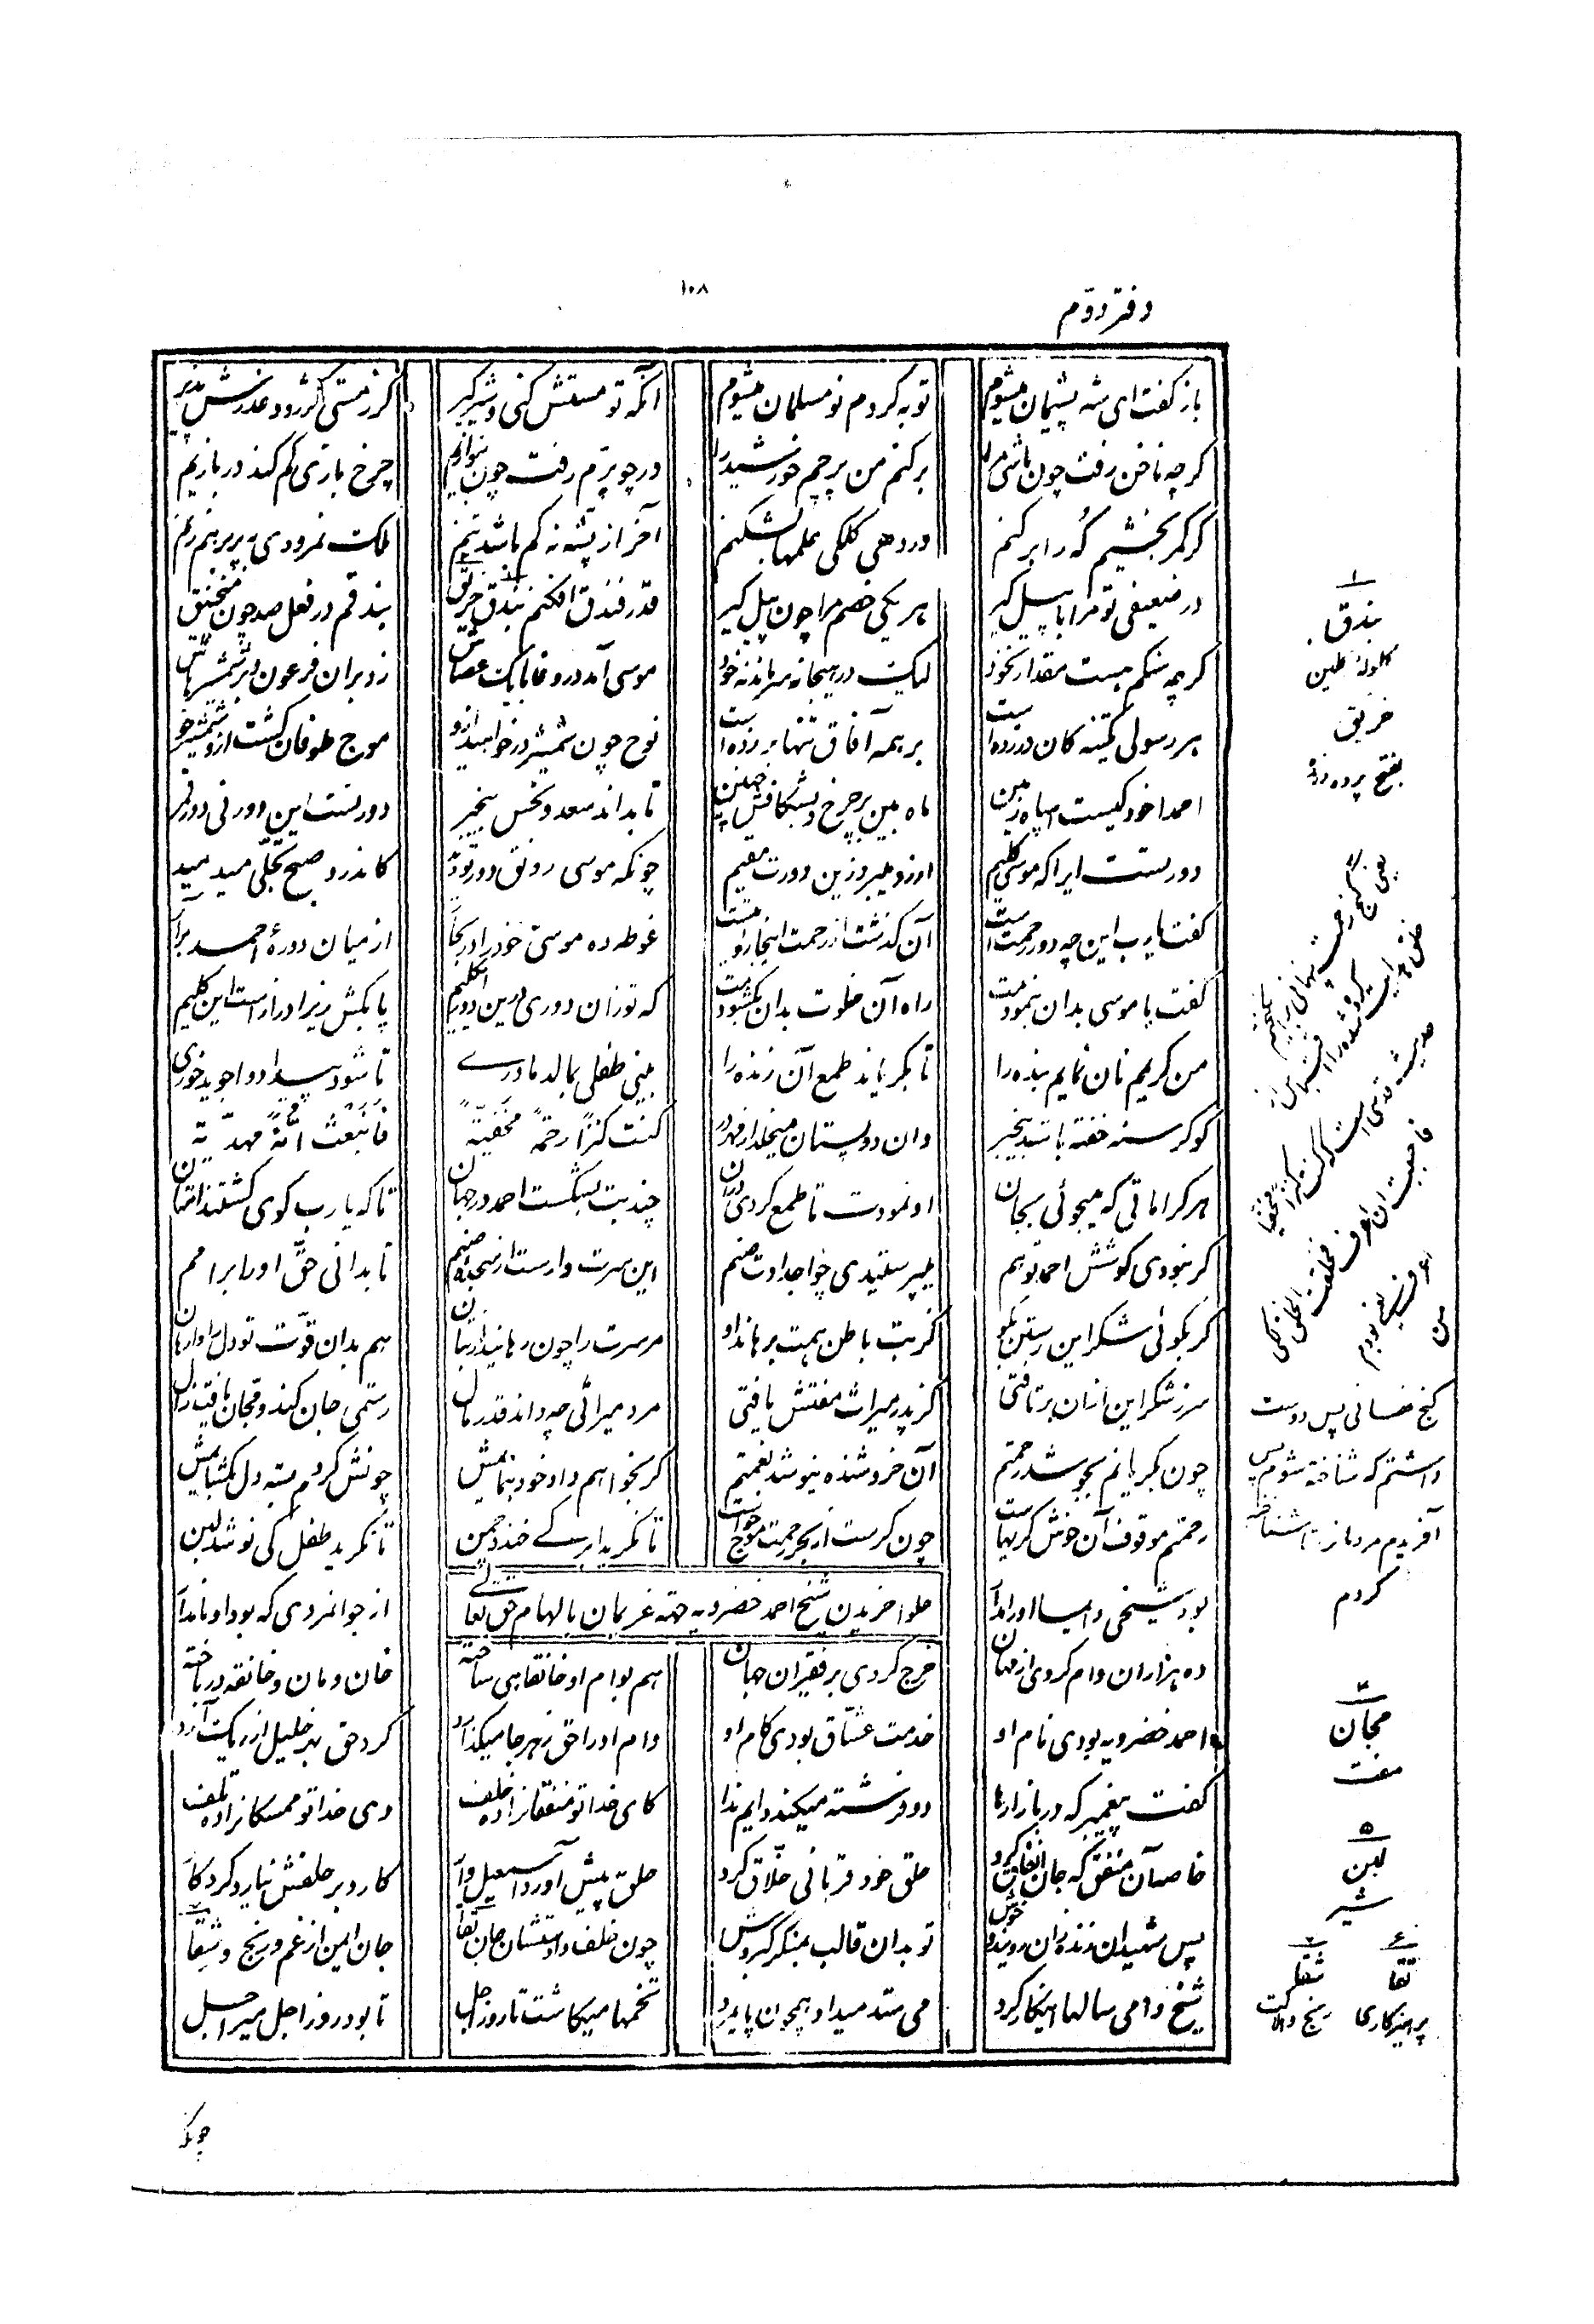 ۱۰۸
دفتر دوّم
باز گفت ای شه پشیمان میشوم توبه کردم نو مسلمان میشوم آنکه تو مستش کنی و شیرگیر گر ز مستی کژ رود عذرش پذیر
گرچه ناخن رفت چون باشی مرا برکنم من پرچم خورشید را ورچه پرّم رفت چون بنوازیم چرخ بازی کم کند در بازیم
گر کمر بخشیم که را برکنم ور دهی کلکی علمها بشکنم آخر از پشه نه کم باشد تنم ملکت نمرودی به پر برهم زنم
در ضعیفی تو مرا بابیل گیر هر یکی خصم مرا چون پیل گیر قدر فندق افکنم بندق خریق بندقم در فعل صد چون منجنیق
گرچه سنگم هست مقدار نخود لیک در هیجا نه سر ماند نه خود موسی آمد در وغا با یک عصاش زد بر آن فرعون و بر شمشیرهاش
هر رسولی یکتنه کان در زده است بر همه آفاق تنها بر زده است نوح چون شمشیر در خواهید ازو موج طوفان گشت ازو شمشیر خو
احمدا خود کیست اسپاه زمین ماه بین بر چرخ و بشکافش جبین تا بداند سعد و نحس بیخبر دور تست این دور نی دور قمر
دور تست ایرا که موسی کلیم آرزو میبرد زین دورت مقیم چونکه موسی رونق دور تو دید کاندرو صبح تجلّی میدمید
گفت یا رب این چه دور رحمت است آن گذشت از رحمت اینجا رؤیت است غوطه ده موسی خود را در بحار از میان دورهٔ احمد برآر
گفت یا موسی بدان بنمودمت راه آن خلوت بدان بگشودمت که تو زان دوری درین دور ای کلیم پا بکش زیرا دراز است این گلیم
من کریمم نان نمایم بنده را تا بگریاند طمع آن زنده را بینی طفلی بمالد مادرے تا شود بیدار و واجوید خوری
کو گرسنه خفته باشد بیخبر وان دو پستان میخلد از مهر در کنت کنزاً رحمةً مخفیّةً فانبعثت امّةً مهدیّةً
هر کراماتی که میجوئی بجان او نمودت تا طمع کردی در آن چند بت بشکست احمد در جهان تا که یا رب گوی گشتند امّتان
گر نبودی کوشش احمد تو هم میپرستیدی چو اجدادت صنم این سرت وارست از سجدهٔ صنم تا بدانی حقّ او را بر امم
گر بگوئی شکر این رستن بگو کز بت باطن همت برهاند او مر سرت را چون رهانید از بتان هم بدان قوّت تو دل را وارهان
سر ز شکر این از آن برتافتی کز پدر میراث مفتش یافتی مرد میراثی چه داند قدر مال رستمی جان کند و مجّان یافت زال
چون بگریانم بجوشد رحمتم آن خروشنده بنوشد نعمتم گر نخواهم داد خود ننمایمش چونش کردم بسته دل بگشایمش
رحمتم موقوف آن خوش گریهاست چون گرست از بحر رحمت موج خواست تا نگرید ابر کے خندد چمن تا نگرید طفل کی نوشد لبن
حلوا خریدن شیخ احمد خضرویه جهة غریمان بالهام حق تعالے
بود شیخی دایما او وامدار از جوانمردی که بود او نامدار
ده هزاران وام کردی از مهان خرج کردی بر فقیران جهان هم بوام او خانقاهی ساخته خان و مان و خانقه درباخته
احمد خضرویه بودی نام او خدمت عشّاق بودی کام او وام او را حق ز هر جا میگذارد کرد حق بهر خلیل از ریگ آرد
گفت پیغمبر که در بازارها دو فرشته میکند دایم ندا کای خدا تو منفقانرا ده خلف وی خدا تو ممسکانرا ده تلف
خاصه آن منفق که جان انفاق کرد حلق خود قربانی خلّاق کرد حلق پیش آورد اسمعیل وار کارد بر حلقش نیارد کرد کار
پس شهیدان زنده زان رویند و خوش تو بدان قالب بمنگر گبروش چون خلف دادستشان جان بقا جان ایمن از غم و رنج و شقا
شیخ وامی سالها اینکار کرد می ستد میداد همچون پایمرد تخمها میکاشت تا روز اجل تا بود روز اجل میر اجل
۱
بندق
کلولهٔ طین
خریق
حدیث قدسی است کنت کنزا مخفیا
فاحببت ان اعرف فخلقت الخلق لکی
اعرف یعنی بودم من
گنج
پس دوست
داشتم که شناخته شوم پس
آفریدم مردمانرا تا شناخته
کردم
مجان
مفت
۵
لبن
شیر
تقا
پرهیزکاری
شقا
رنج و
چونکه